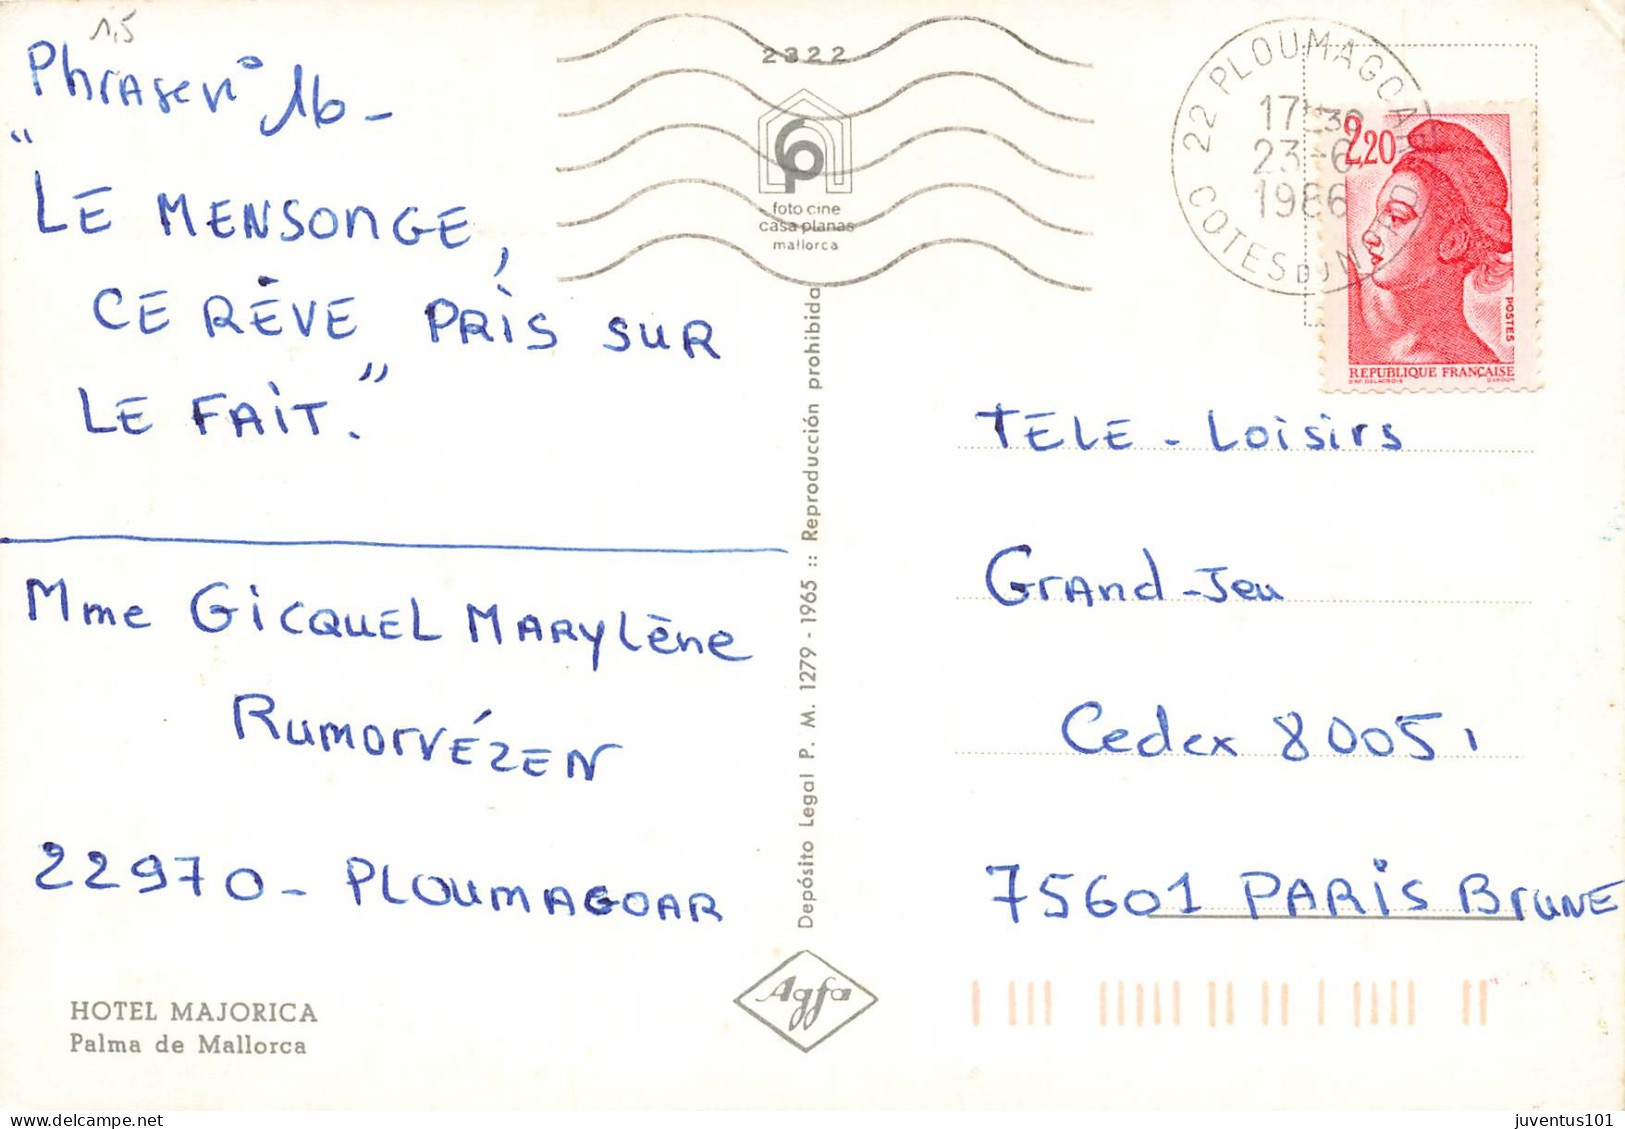 1,5
Phrase n° 16 -
"LE MENSONGE,
CE RÊVE PRIS SUR
LE FAIT."
Mme GICQUEL MARYLÈNE
RUMORVÉZEN
22970 - PLOUMAGOAR
HOTEL MAJORICA
Palma de Mallorca
2322
foto cine
casa planas
mallorca
Depósito Legal P. M. 1279 - 1965 :: Reproducción prohibida
Agfa
22 PLOUMAGOAR
17H30
23-6
1986
COTES DU NORD
2,20
POSTES
REPUBLIQUE FRANÇAISE
TELE - Loisirs
Grand-Jeu
Cedex 80051
75601 PARIS BRUNE
juventus101